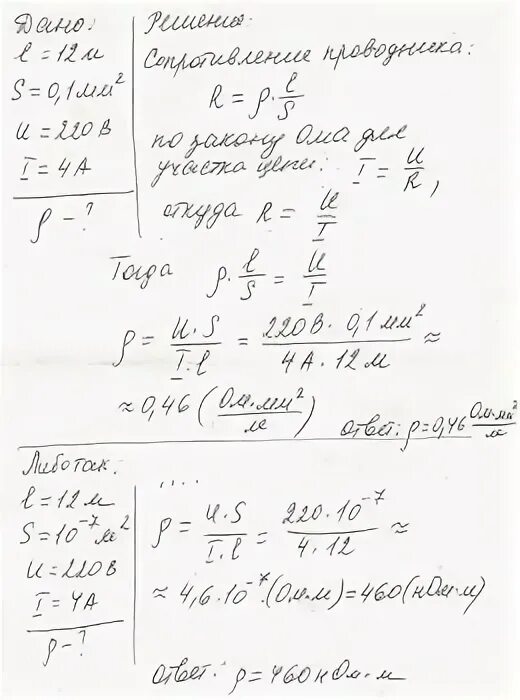 Дано:
l = 12 м
S = 0,1 мм²
U = 220 В
I = 4А
ρ - ?
Решение
Сопротивление проводника:
R = ρ · l/S
по закону Ома для
участка цепи: I = U/R,
откуда R = U/I
Тогда ρ · l/S = U/I
ρ = U·S / I·l = 220 В · 0,1 мм² / 4А · 12 м ≈
≈ 0,46 (Ом·мм²/м) Ответ: ρ = 0,46 Ом·мм²/м
Либо так:
l = 12 м
S = 10⁻⁷ м²
U = 220В
I = 4А
ρ - ?
....
ρ = U·S / I·l = 220·10⁻⁷ / 4·12 ≈
≈ 4,6·10⁻⁷ (Ом·м) = 460 (нОм·м)
Ответ: ρ = 460 нОм·м